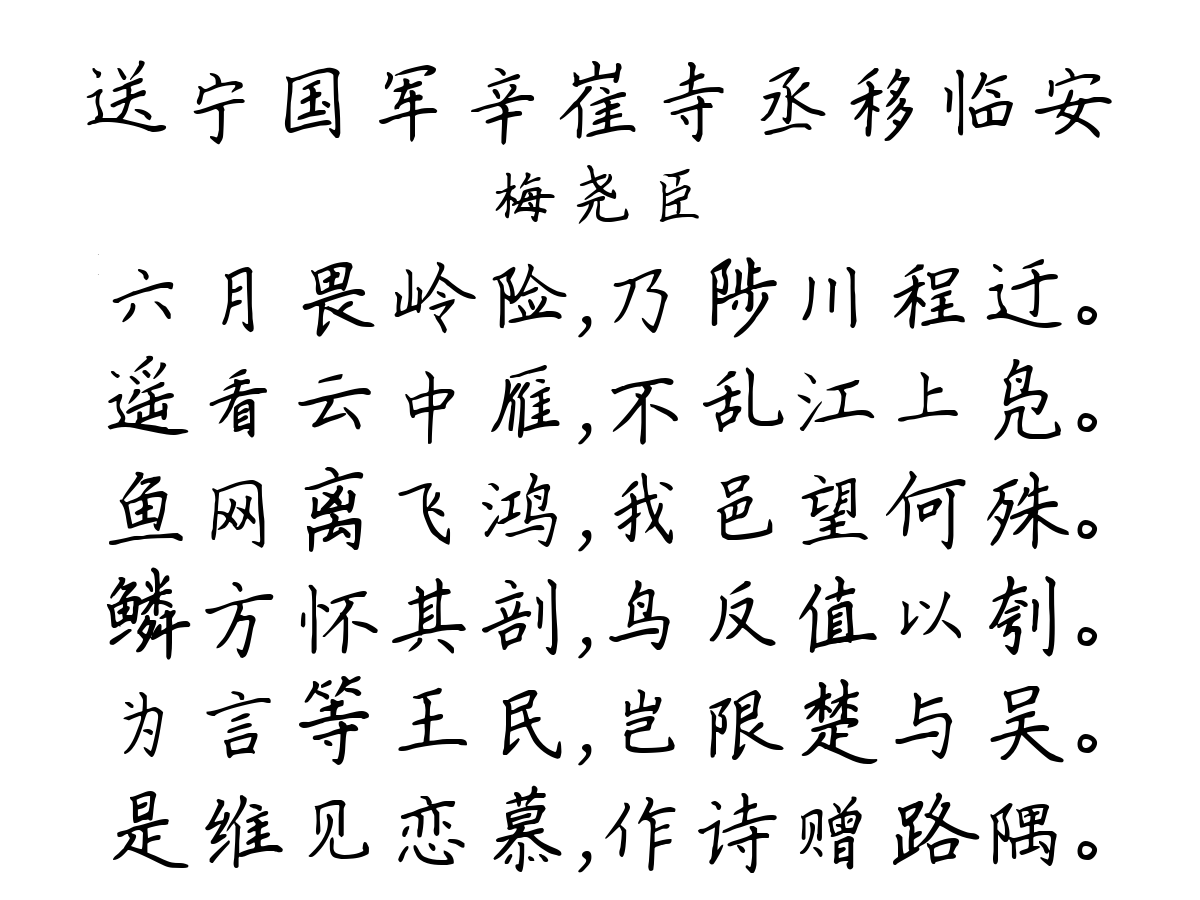 送宁国军辛崔寺丞移临安
梅尧臣
六月畏岭险,乃陟川程迂。
遥看云中雁,不乱江上凫。
鱼网离飞鸿,我邑望何殊。
鳞方怀其剖,鸟反值以刳。
为言等王民,岂限楚与吴。
是维见恋慕,作诗赠路隅。